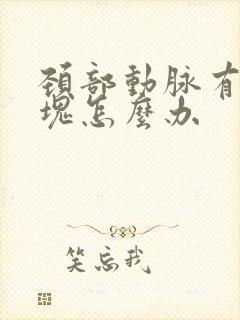 頸部動脉有
塊怎麼办
笑忘我